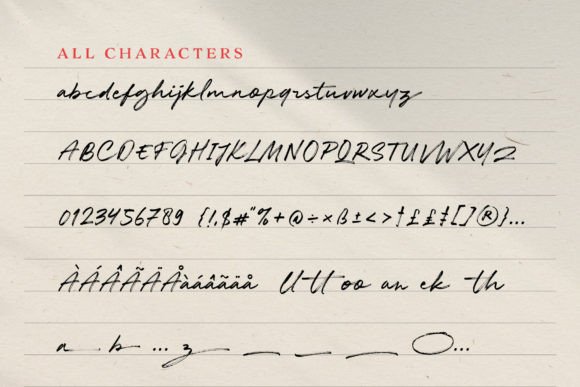 ALL CHARACTERS
abcdefghijklmnopqrstuvwxyz
ABCDEFGHIJKLMNOPQRSTUVWXYZ
0123456789 {!,$#"%+@÷×ß±<>†££‡[]®}...
ÀÁÂÃÄÅàáâãäå Utt oo an ck th
a b ... z _ _ _ O...